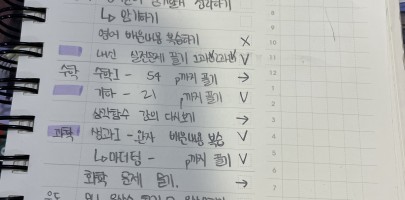 ↳ 암기하기
영어 배운내용 복습하기 X
내신 실전문제 풀기 V
수학 수학I - 54 p까지 풀기 →
기타 - 21 p까지 풀기 V
삼각함수 강의 다시보기 →
과학 생과I - 완자 배운내용 복습 V
↳ 마더텅 - p까지 풀기 V
화학 문제 풀기. →
8
9
10
11
12
1
2
3
4
5
6
7